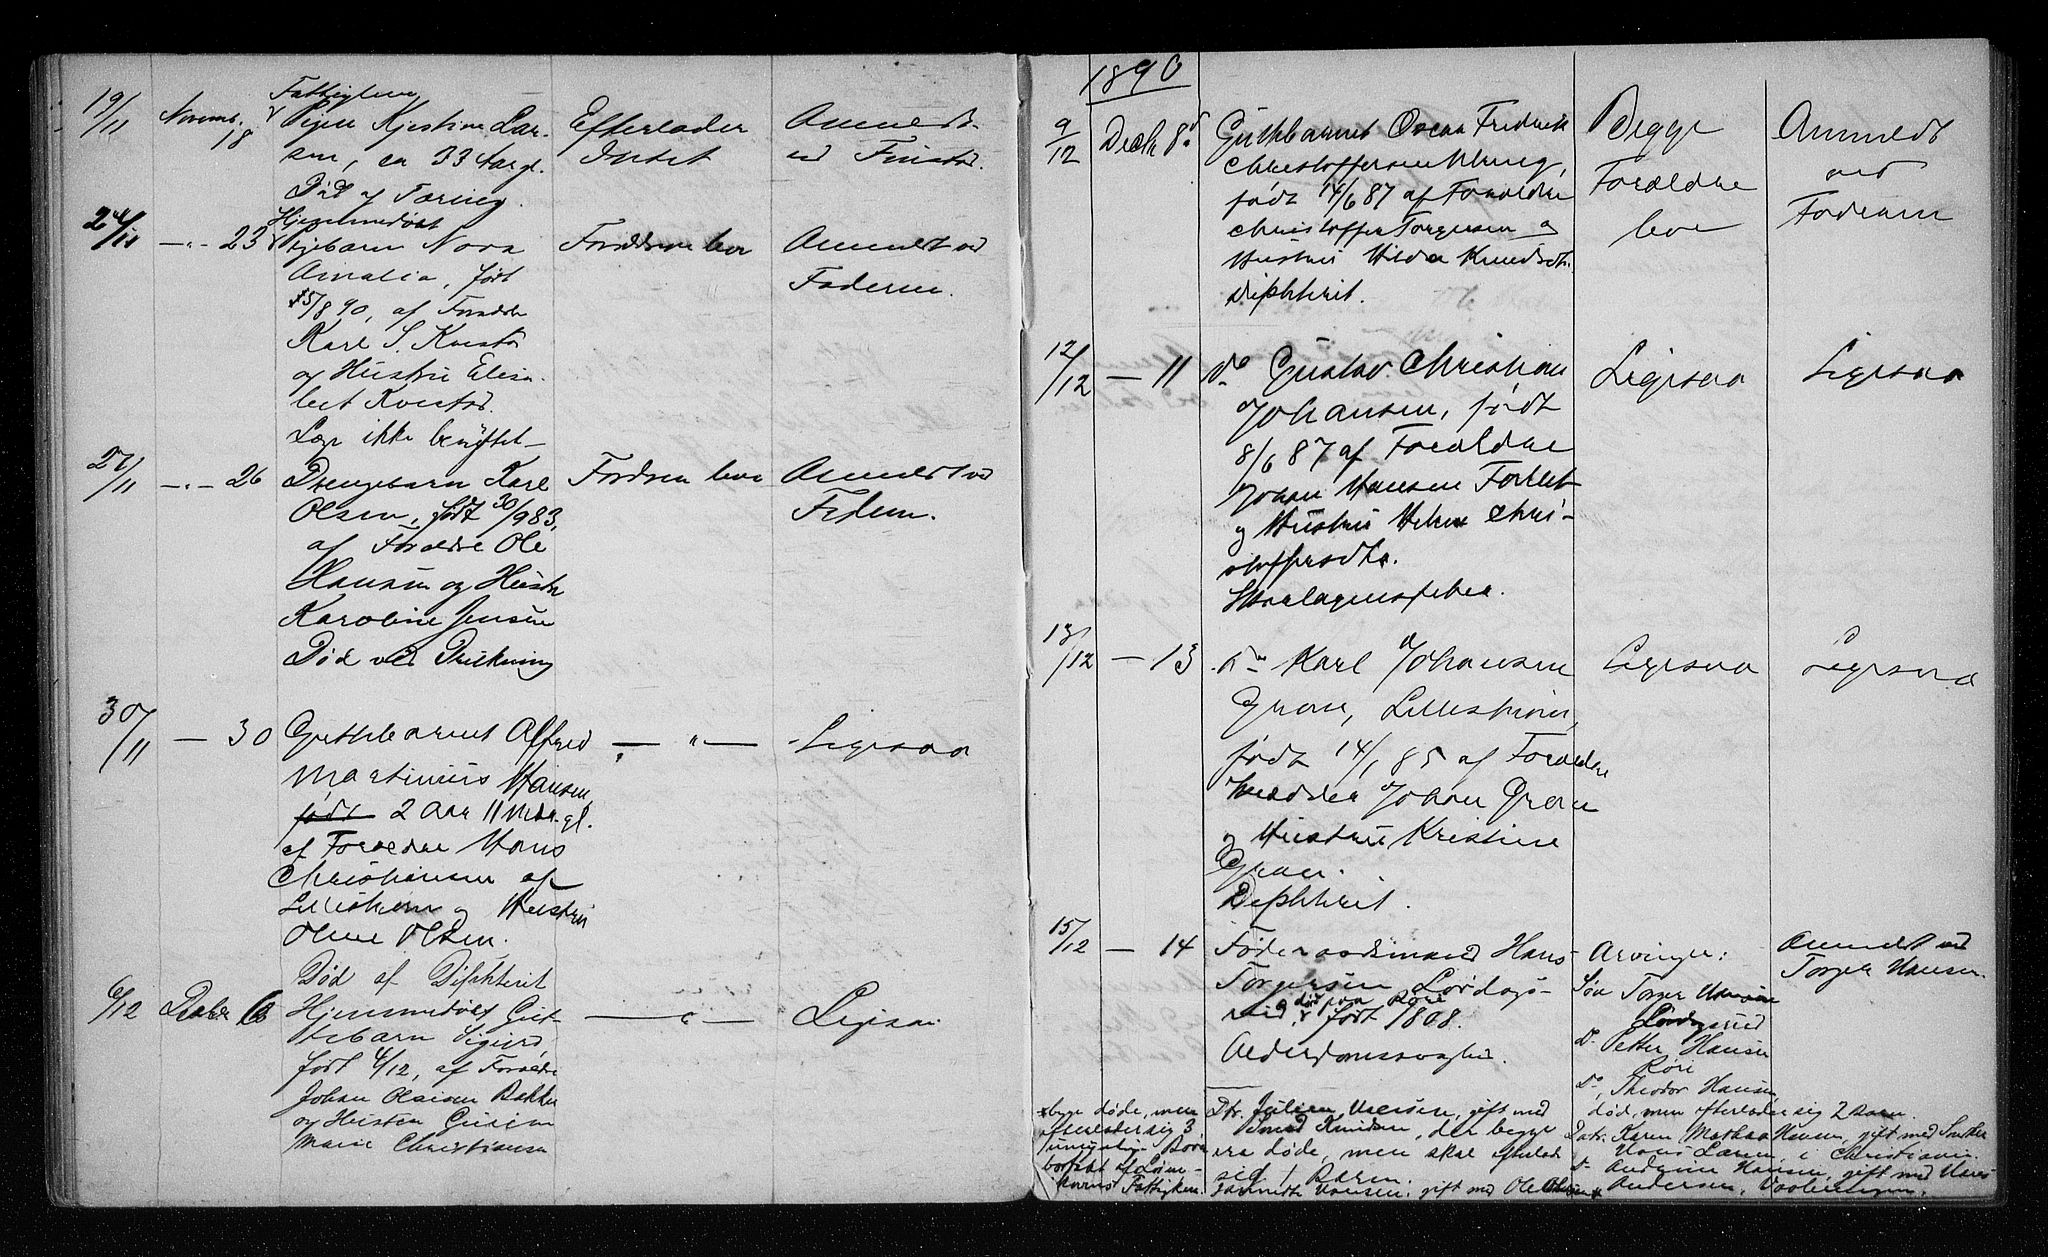 19/11 Novemb. 18
Fattiglem
Pigen Kjestine Lar-
sen, ca 33 Aar gl.
Død af Tæring.
Efterlader
Intet
Anmeldt
ved
24/11 —"— 23
Hjemmedøbt
Pigebarn Nora
Amalia, født
15/8 90, af Forældre
Karl S. Kvesta
og Hustru Elisa-
bet Kvestad.
Læge ikke benyttet
Forældrene leve
Anmeldt ved
Faderen.
27/11 —"— 26
Drengebarn Karl
Olsen, født 30/9 83,
af Forældre Ole
Hansen og Hustru
Karoline Jensen
Død ved Drukning
Forældren leve
Anmeldt ved
Federn.
30/11 — 30
Guttebarnet Alfred
Martinius Hansen,
født 2 Aar 11 Mdr. gl.
af Forældre Hans
Christiansen af
Lillestrøm og Hustru
Oline Olsen.
Død af Difhterit
— " —
Ligesaa
6/12 Decbr 6
Hjemmedøbt Gut-
tebarn Sigurd,
født 4/12, af Forældre
Johan Olsisen Bakke
og Hustru
Marie Christiansen
— " —
Ligesaa
1890
9/12 Decbr 8d
Guttebarnet Oscar Fredrik
Christoffersen
født 14/6 87 af Forældre
Christoffer Torgersen og
Hustru Hilda Knudsdtr.
Diphterit.
Begge
Forældre
leve
Anmeldt
ved
Faderen
12/12 — 11
do Gustav Christian
Johansen, født
8/6 87 af Forældre
Johan Hansen
og Hustru Helene Chri-
stoffersdtr.
Skarlagensfeber.
Ligesaa
Ligesaa
13/12 — 13
do Karl Johansen
Gran, Lillestrøm,
født 14/1 85 af Forældre
Johan Gran
og Hustru Kristine
Gran.
Diphterit.
Ligesaa
Ligesaa
15/12 — 14
Føderaadsmand Hans
Torgersen Lørdags-
rud, død paa Køre
født 1808.
Alderdomssvaghed.
Arvinger:
Søn Torger Hansen
Lørdagsrud
do Petter Hansen
Køre
do, Theodor Hansen,
død, men efterlader sig 2 Børn.
Datr. Karen Mathea Hansen, gift med Snekker
Hans Larsen, i Christiania.
do Andrine Hansen, gift med Hans
Andersen,
Anmeldt ved
Torger Hansen.
Dtr. Juliane Hansen, gift med
Smed Knudsen, der begge
ere døde, men skal efterlade
sig 1 Barn.
Hansen, gift med Ole Olsen
begge døde, men
efterlader sig 3
umyndige Børn
bortsat af Lørn-
Fattigkom.